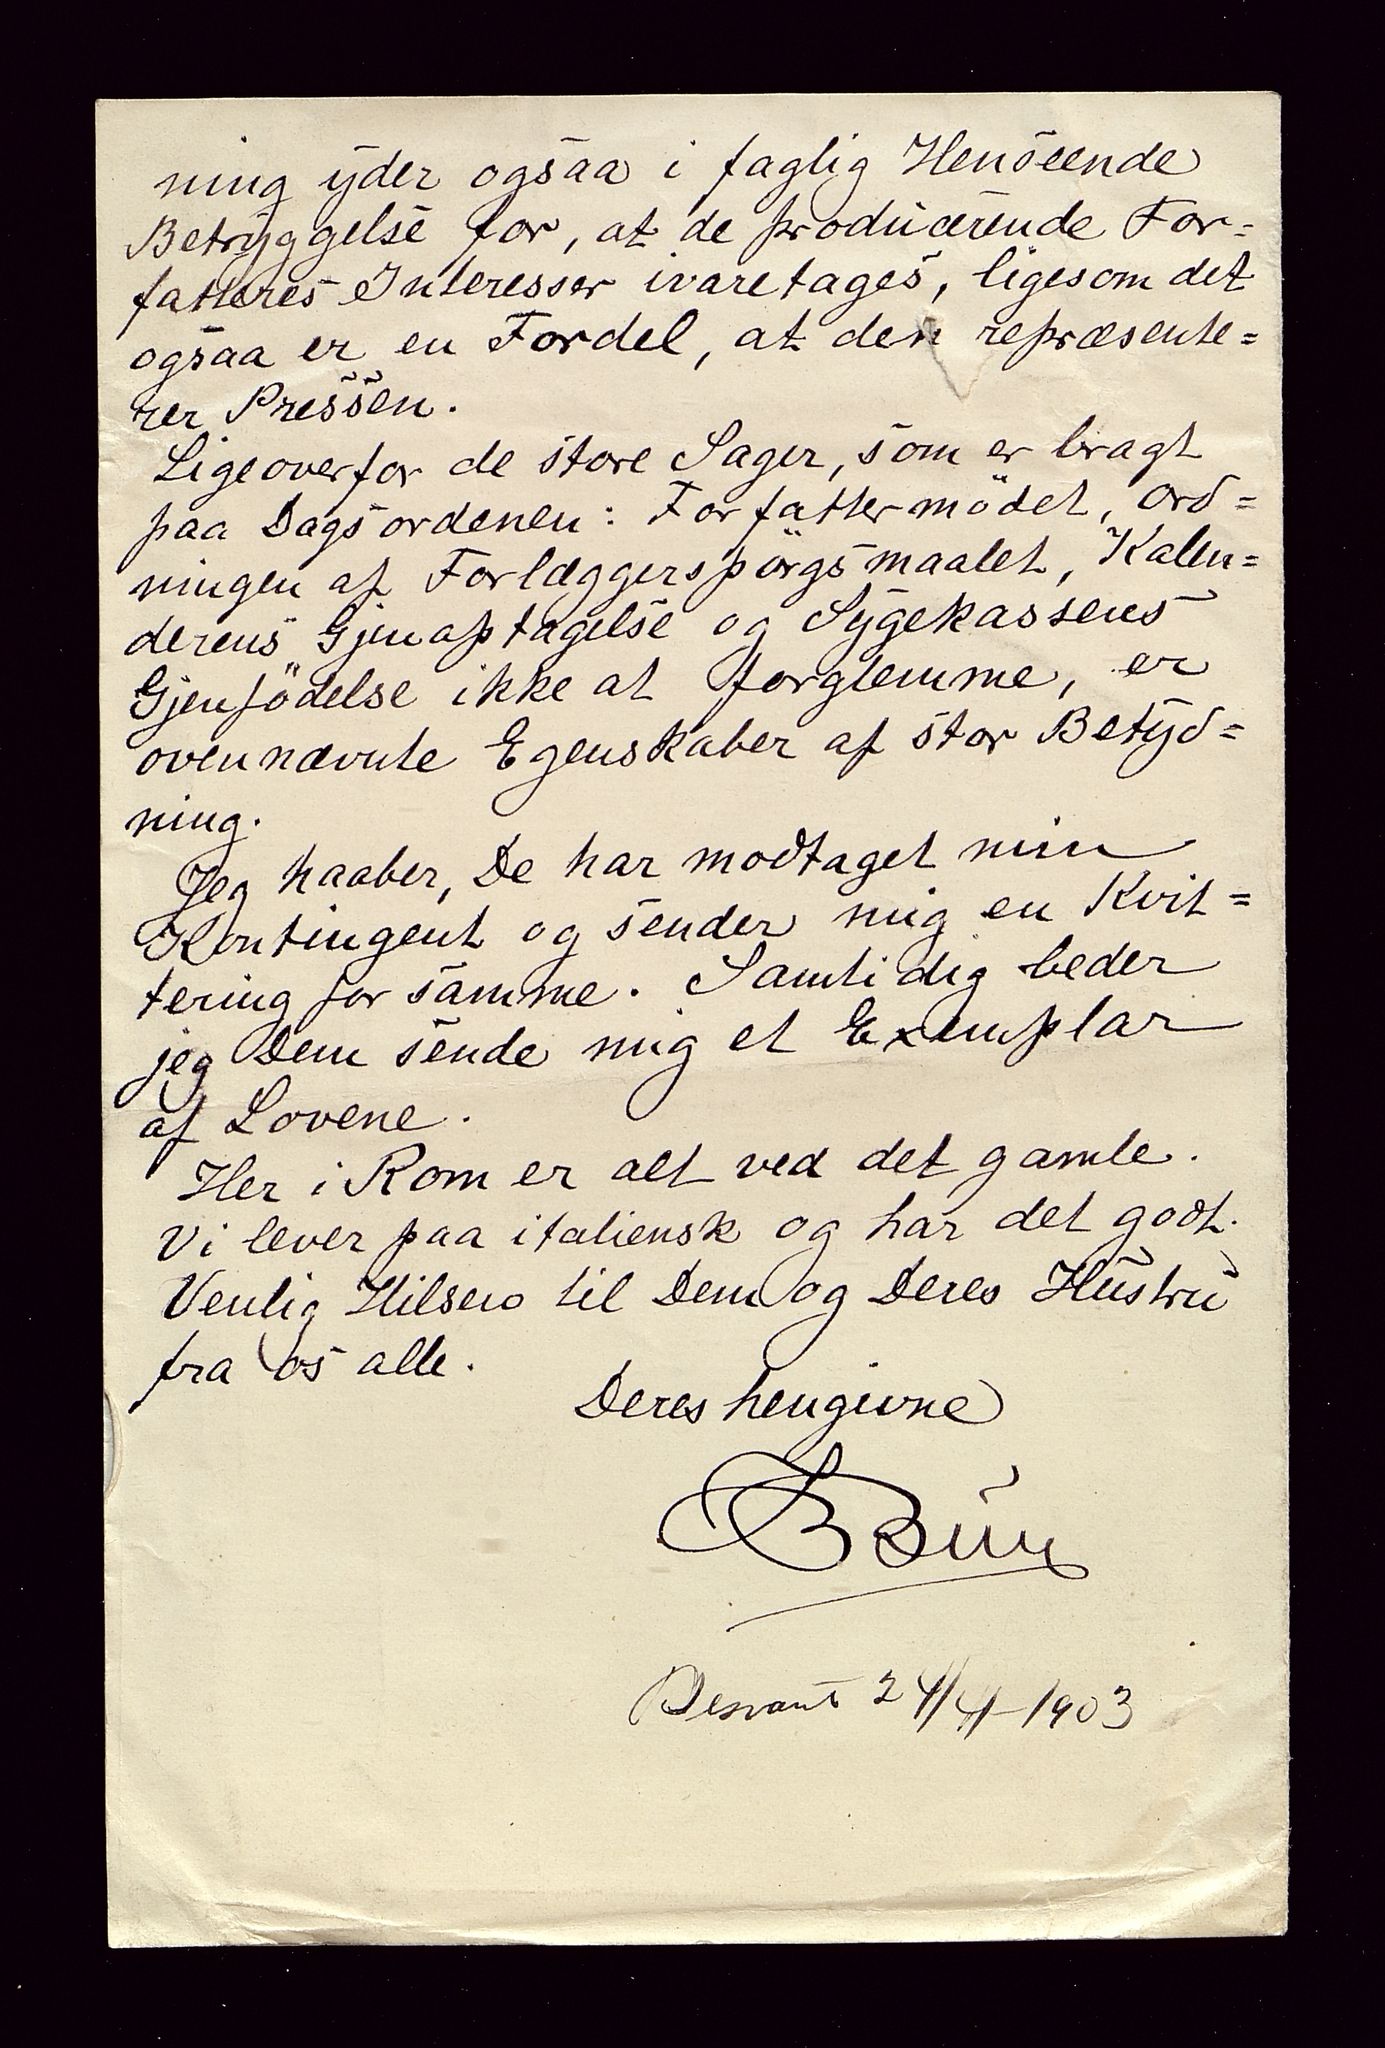 ning yder ogsaa i faglig Henseende
Betryggelse for, at de producerende For=
fatteres Interesser ivaretages, ligesom det
ogsaa er en Fordel, at den repræsente=
rer Pressen.
Ligeoverfor de store Sager, som er bragt
paa Dagsordenen: Forfattermödet, Ord=
ningen af Forlæggerspörgsmaalet, Kalen=
derens Gjenoptagelse og Sygekassens
Gjenfödelse ikke at forglemme, er
ovennævnte Egenskaber af stor Betyd=
ning.
Jeg haaber, De har modtaget min
Kontingent og sender mig en Kvit=
tering for samme. Samtidig beder
jeg Dem sende mig et Exemplar
af Lovene.
Her i Rom er alt ved det gamle.
Vi lever paa italiensk og har det godt.
Venlig Hilsen til Dem og Deres Hustru
fra os alle.
Deres hengivne
Besvart 24/4-1903